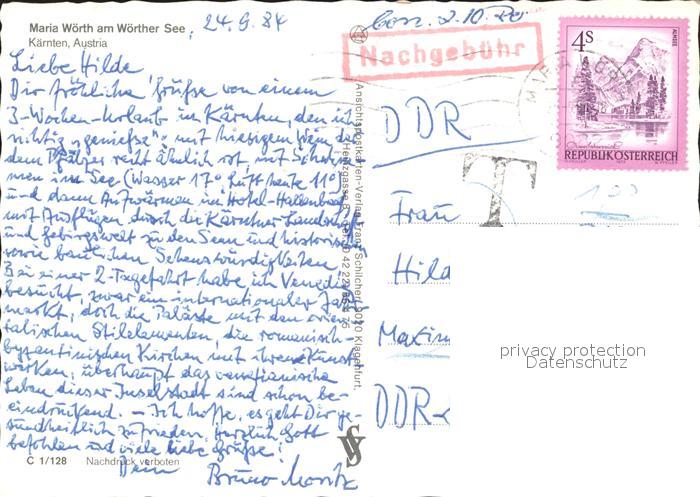 Maria Wörth am Wörther See, 24.9.84
Kärnten, Austria
Liebe Hilde
Dir fröhliche Grüße von einem
3-Wochen-Urlaub in Kärnten, den ich
richtig "genieße" mit hiesigem Wein,
dem Pfälzer recht ähnlich, mit Schwim-
men im See (Wasser 17° Luft heute 11°)
und dann Aufwärmen im Hotel-Hallenbad
mit Ausflügen durch die Kärntner Landschaft
und Gebirgswelt zu den Seen und historischen
sowie baulichen Sehenswürdigkeiten.
Bei einer 2-Tagefahrt habe ich Venedig
besucht, zwar ein internationaler Jahr-
markt, doch die Paläste mit den orien-
talischen Stilelementen, die romanisch-
byzantinischen Kirchen mit ihren Kunst-
werken, überhaupt das venezianische
Leben dieser Inselstadt sind schon be-
eindruckend. – Ich hoffe, es geht Dir ge-
sundheitlich zufrieden. Herzlich Gott
befohlen und viele liebe Grüße!
Dein Bruno Moritz
C 1/128 Nachdruck verboten
Ansichtspostkarten-Verlag Franz Schilcher, 9020 Klagenfurt,
2.10.
Nachgebühr
4S
ALMSEE
REPUBLIK ÖSTERREICH
T
DDR
Frau
Hild
Maxim
DDR-
privacy protection
Datenschutz